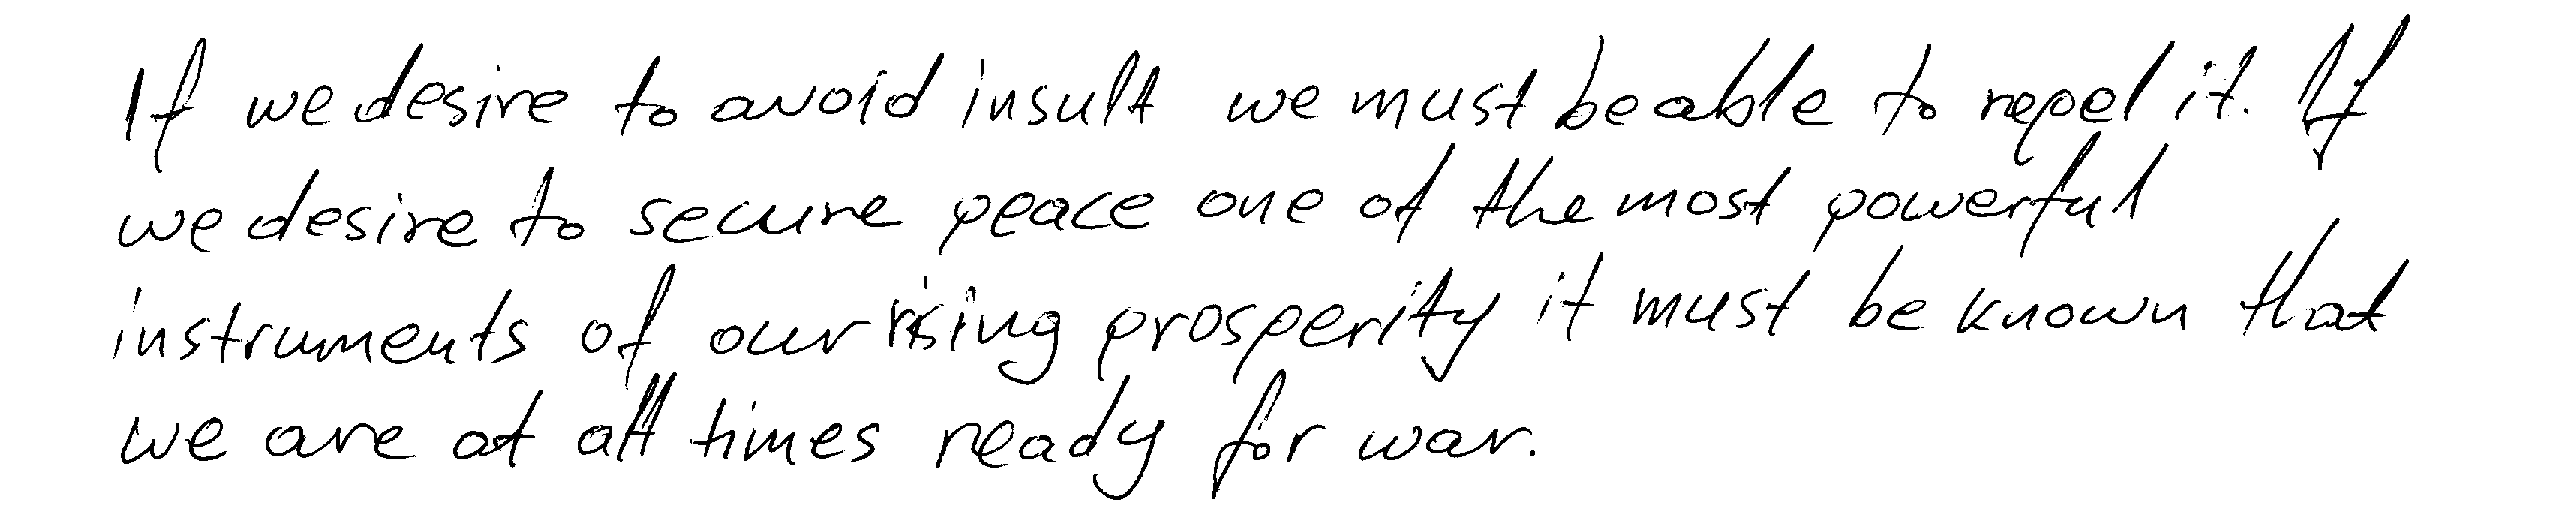 If we desire to avoid insult we must be able to repel it. If
we desire to secure peace one of the most powerful
instruments of our rising prosperity it must be known that
we are at all times ready for war.